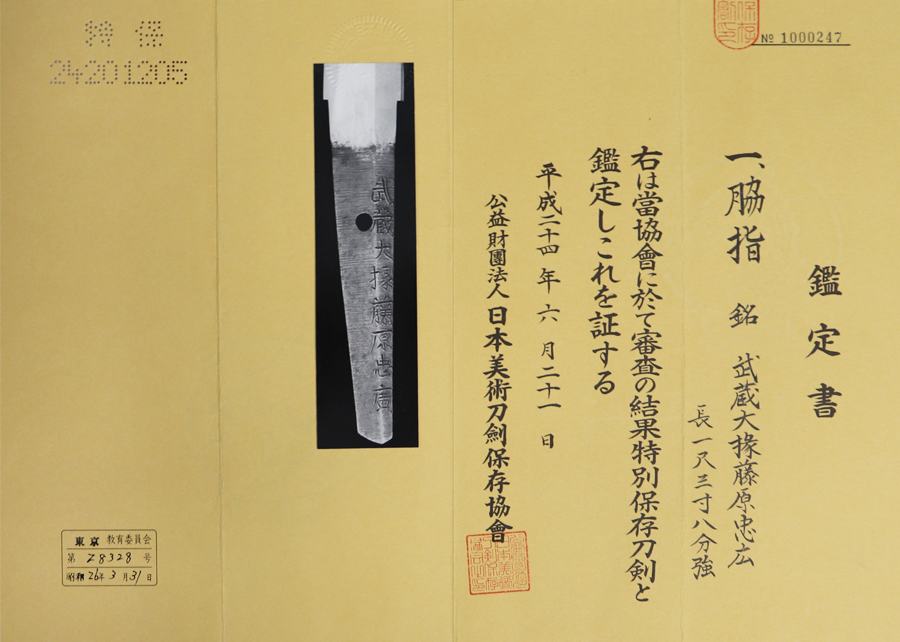 № 1000247
鑑定書
一、脇指 銘 武蔵大掾藤原忠広
長一尺三寸八分強
右は當協會に於て審査の結果特別保存刀剣と
鑑定しこれを証する
平成二十四年六月二十一日
公益財團法人日本美術刀劍保存協會
武蔵大掾藤原忠廣
特保
24201205
東京 教育委員会
第 28328 号
昭和 26年 3月 31日